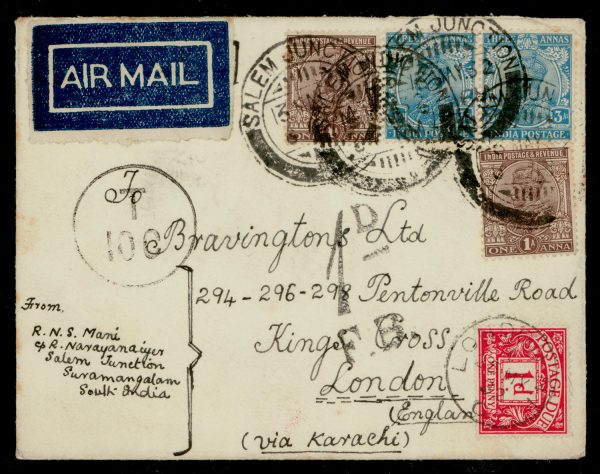 AIR MAIL
SALEM JUNCTION
INDIA POSTAGE & REVENUE
ANNAS
3As
INDIA POSTAGE
INDIA POSTAGE & REVENUE
ONE 1A ANNA
To
T
100
Bravingtons Ltd
1D
F.B.
294-296-298 Pentonville Road
Kings Cross,
London
(England
(via Karachi)
From,
R.N.S. Mani
c/o R. Narayanaiyer
Salem Junction
Suramangalam
South India
POSTAGE DUE
1D
ONE PENNY